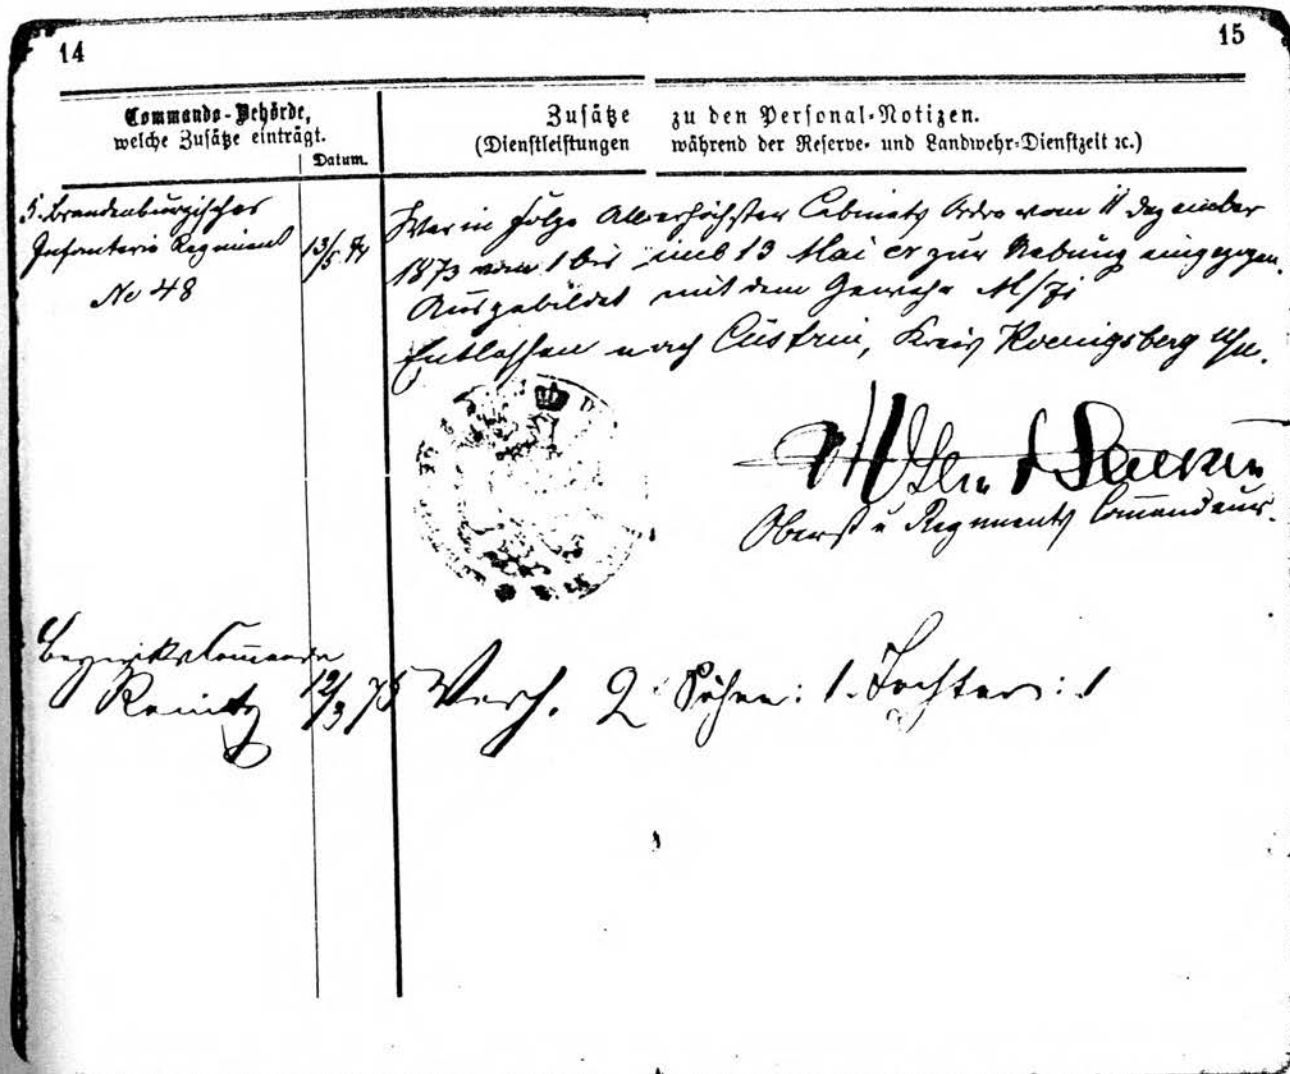 14
15
Commando-Behörde,
welche Zusätze einträgt.
Datum.
Zusätze zu den Personal-Notizen.
(Dienstleistungen während der Reserve- und Landwehr-Dienstzeit ꝛc.)
5. Brandenburgisches
Infanterie Regiment
No 48
13/5. 74
War in Folge Allerhöchster Cabinets Ordre vom 11 Dezember
1873 vom 1 bis incl 13 Mai cr zur Uebung eingezogen.
Ausgebildet mit dem Gewehr M/71
Entlassen nach Cüstrin, Kreis Koenigsberg N/M.
Oberst u Regiments Commandeur.
Bezirks Commando
12/3 75
Verh. 2 Söhne: 1. Tochter: 1